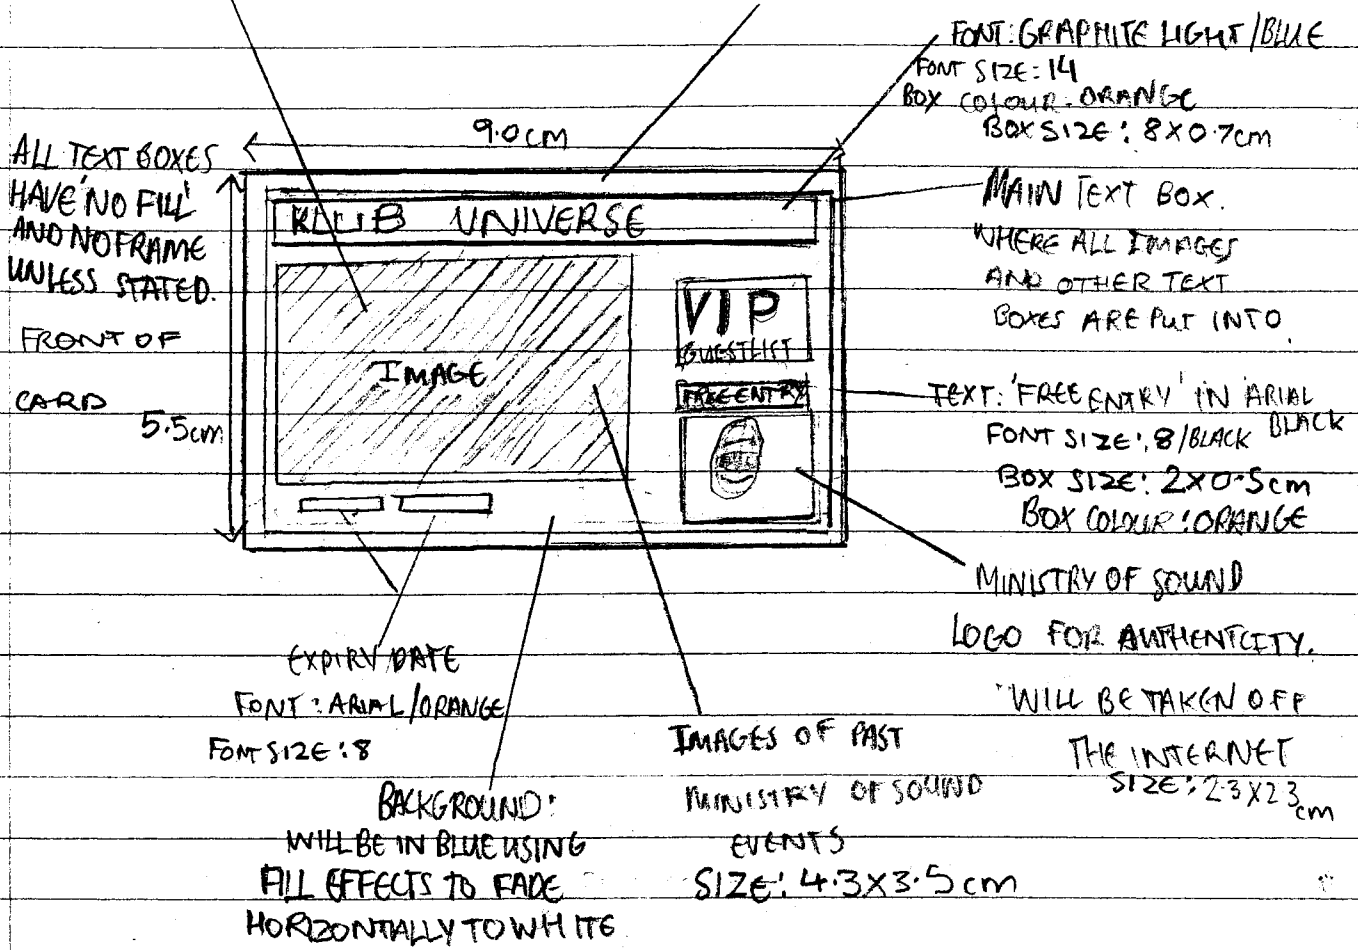 FONT: GRAPHITE LIGHT/BLUE
FONT SIZE: 14
BOX COLOUR: ORANGE
BOX SIZE: 8X0.7cm
9.0cm
ALL TEXT BOXES
HAVE 'NO FILL'
AND NO FRAME
UNLESS STATED.
FRONT OF
CARD
5.5cm
KLUB UNIVERSE
IMAGE
VIP
GUESTLIST
FREE ENTRY
MAIN TEXT BOX.
WHERE ALL IMAGES
AND OTHER TEXT
BOXES ARE PUT INTO.
TEXT: 'FREE ENTRY' IN ARIAL
BLACK
FONT SIZE: 8/BLACK
BOX SIZE: 2X0.5cm
BOX COLOUR: ORANGE
MINISTRY OF SOUND
LOGO FOR AUTHENTCITY.
WILL BE TAKEN OFF
THE INTERNET
SIZE: 2.3X2.3cm
EXPIRY DATE
FONT: ARIAL/ORANGE
FONT SIZE: 8
BACKGROUND:
WILL BE IN BLUE USING
FILL EFFECTS TO FADE
HORIZONTALLY TO WHITE
IMAGES OF PAST
MINISTRY OF SOUND
EVENTS
SIZE: 4.3X3.5cm